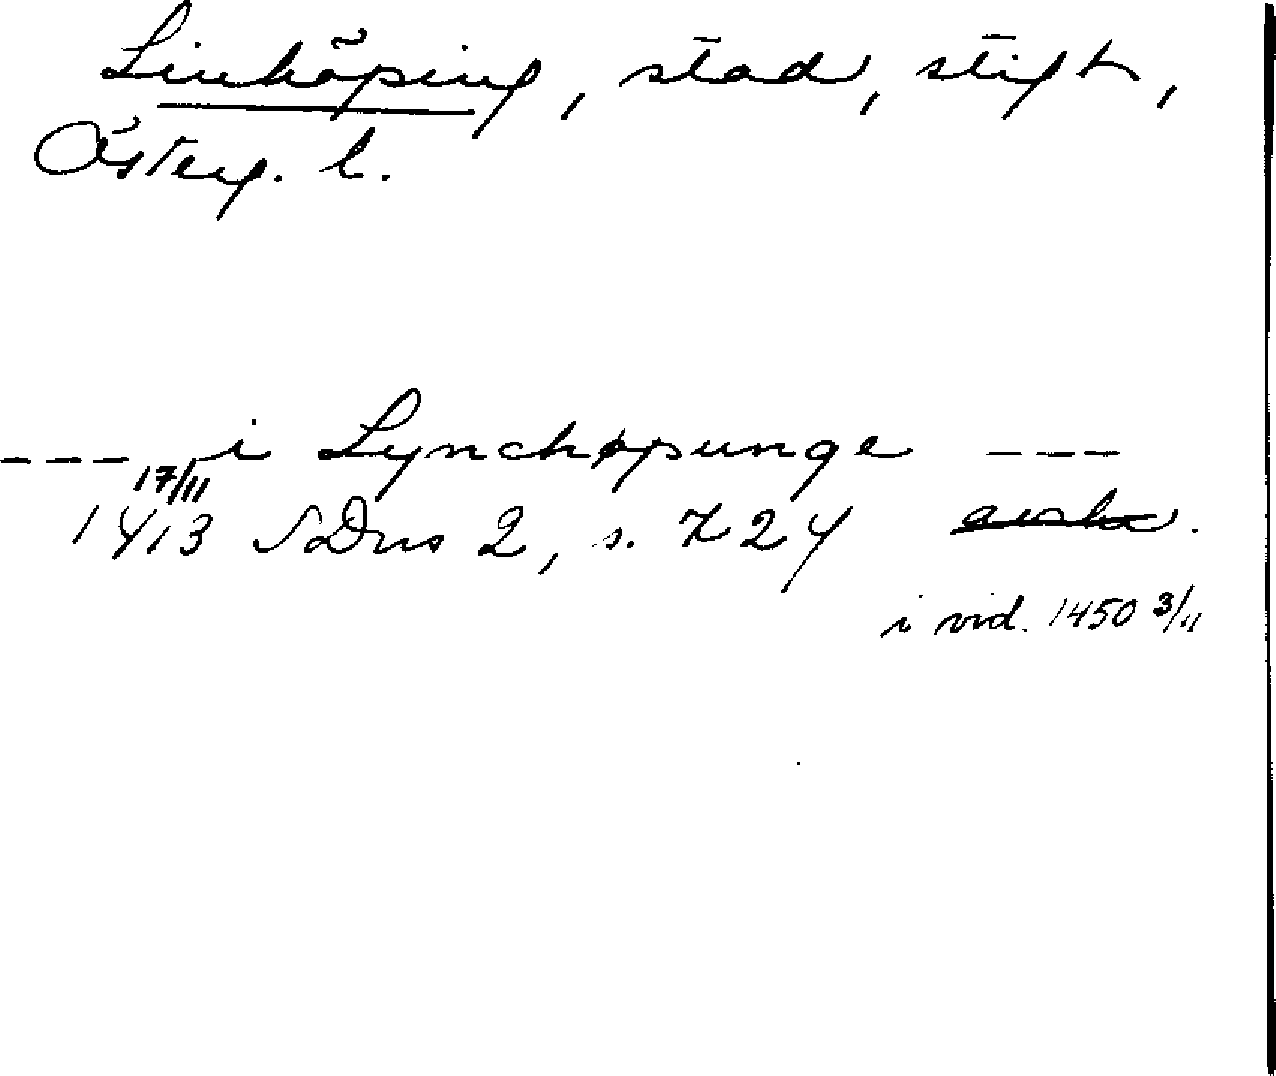 Linköping, stad, stift,
Österg. l.
--- i Lynchøpunge ---
17/11
1413 SDns 2, s. 724 avskr.
i vid. 1450 3/11